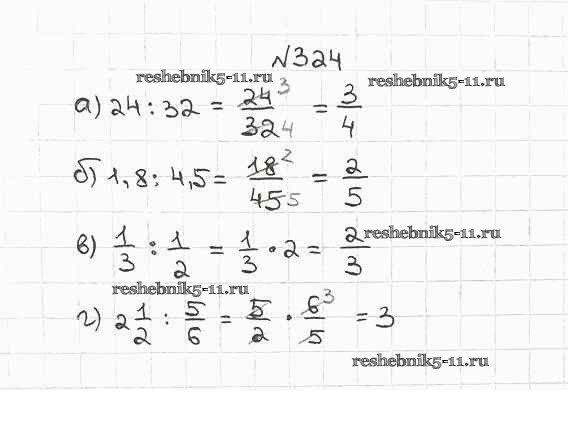 №324
reshebnik5-11.ru
reshebnik5-11.ru
а) 24 : 32 = 24 3/32 4 = 3/4
б) 1,8 : 4,5 = 18 2/45 5 = 2/5
в) 1/3 : 1/2 = 1/3 · 2 = 2/3
reshebnik5-11.ru
reshebnik5-11.ru
г) 2 1/2 : 5/6 = 5/2 · 6 3/5 = 3
reshebnik5-11.ru